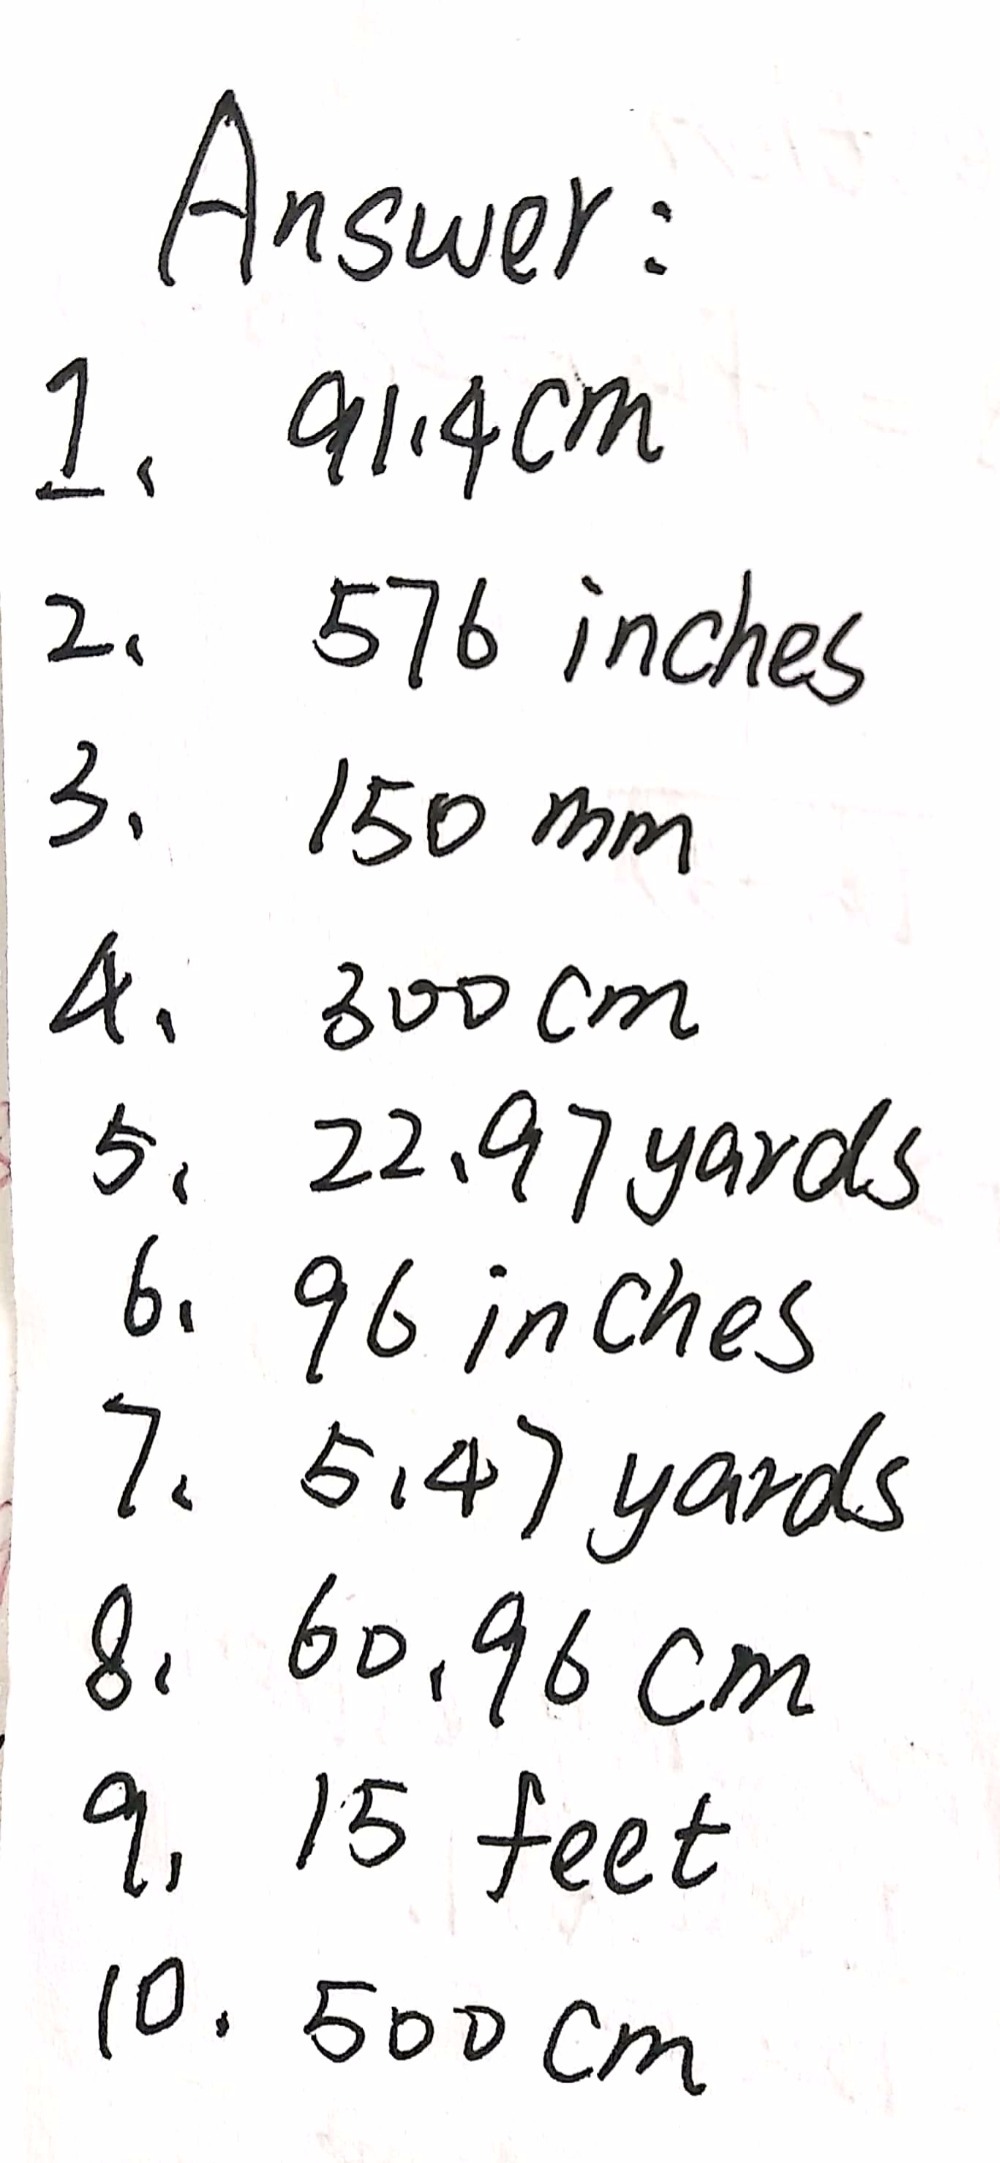 Answer:
1. 91.4cm
2. 576 inches
3. 150 mm
4. 300 cm
5. 22.97 yards
6. 96 inches
7. 5.47 yards
8. 60.96 cm
9. 15 feet
10. 500 cm